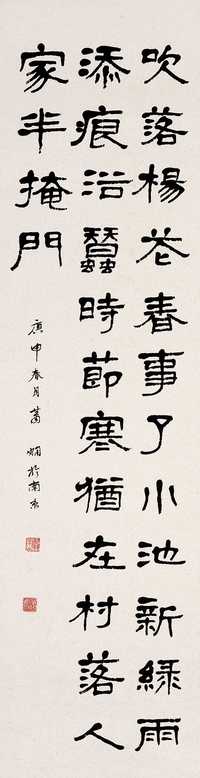 吹落楊花春事了小池新綠雨
添痕浴蠶時節寒猶在村落人
家半掩門
庚申春月蕭嫻於南京